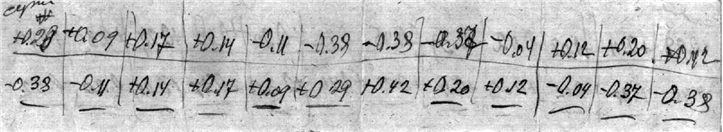 серии
+0.29 +0.09 +0.17 +0.14 -0.11 -0.38 -0.38 -0.37 -0.04 +0.12 +0.20 +0.42
-0.38 -0.11 +0.14 +0.17 +0.09 +0.29 +0.42 +0.20 +0.12 -0.04 -0.37 -0.38